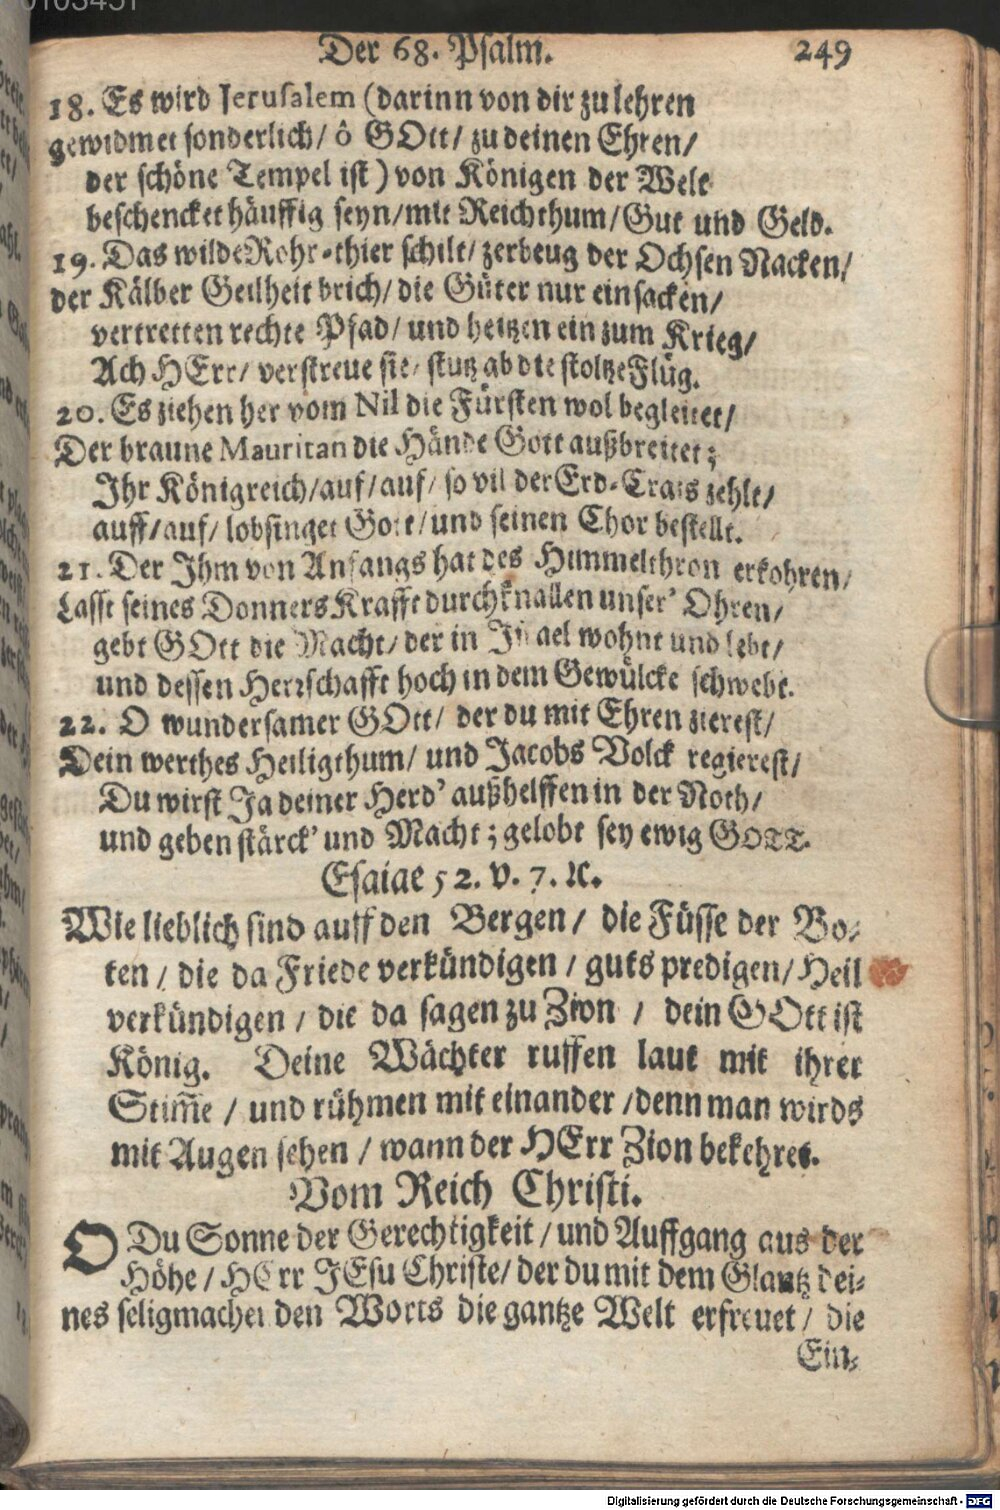 Der 68. Psalm. 249
18. Es wird Jerusalem (darinn von dir zu lehren
gewidmet sonderlich/ ô GOtt/ zu deinen Ehren/
der schöne Tempel ist) von Königen der Welt
beschencket häuffig seyn/ mit Reichthum/ Gut und Geld.
19. Das wilde Rohr-thier schilt/ zerbeug der Ochsen Nacken/
der Kälber Geilheit brich/ die Güter nur einsacken/
vertretten rechte Pfad/ und heitzen ein zum Krieg/
Ach HErr/ verstreue sie/ stutz ab die stoltze Flüg.
20. Es ziehen her vom Nil die Fürsten wol begleitet/
Der braune Mauritan die Hände Gott außbreitet;
Ihr Königreich/ auf/ auf/ so vil der Erd-Crais zehlt/
auff/ auf/ lobsinget Gott/ und seinen Chor bestellt.
21. Der Ihm von Anfangs hat des Himmelthron erkohren/
Lasst seines Donners Krafft durchknallen unser' Ohren/
gebt GOtt die Macht/ der in Israel wohnt und lebt/
und dessen Herrschafft hoch in dem Gewülcke schwebt.
22. O wundersamer GOtt/ der du mit Ehren zierest/
Dein werthes Heiligthum/ und Jacobs Volck regierest/
Du wirst Ja deiner Herd' außhelffen in der Noth/
und geben stärck' und Macht; gelobt sey ewig GOTT.
Esaiae 52. v. 7. 8.
Wie lieblich sind auff den Bergen/ die Füsse der Bo-
ten/ die da Friede verkündigen/ guts predigen/ Heil
verkündigen/ die da sagen zu Zion/ dein GOtt ist
König. Deine Wächter ruffen laut mit ihrer
Stim̃e/ und rühmen mit einander/ denn man wirds
mit Augen sehen/ wann der HErr Zion bekehret.
Vom Reich Christi.
O Du Sonne der Gerechtigkeit/ und Auffgang aus der
Höhe/ HErr JEsu Christe/ der du mit dem Glantz dei-
nes seligmachenden Worts die gantze Welt erfreuet/ die
Ein-
Digitalisierung gefördert durch die Deutsche Forschungsgemeinschaft - DFG